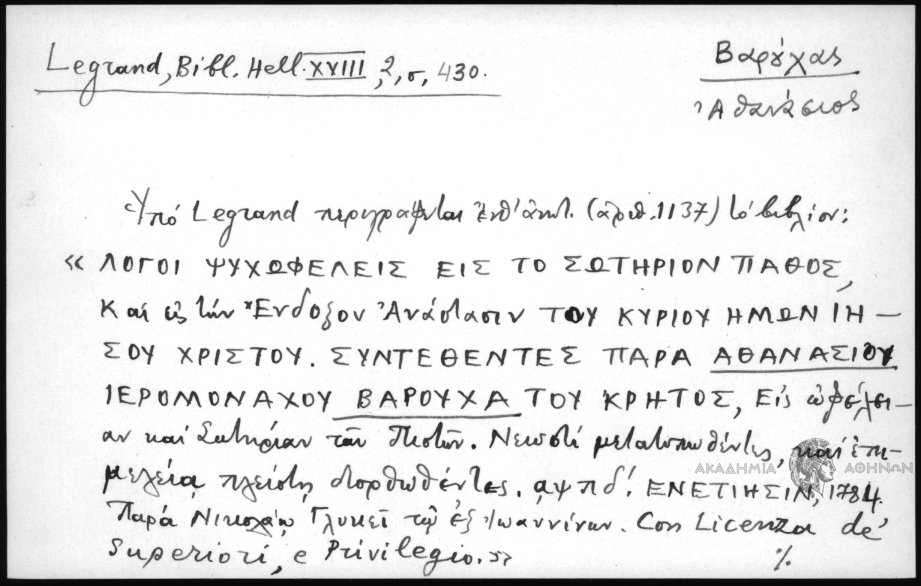 Legrand, Bibl. Hell. XVIII, 2, σ, 430.
Βαρούχας
Ἀθανάσιος
Ὑπὸ Legrand περιγράφεται ἐνθ' ἀνωτ. (ἀριθ. 1137) τὸ βιβλίον:
« ΛΟΓΟΙ ΨΥΧΩΦΕΛΕΙΣ ΕΙΣ ΤΟ ΣΩΤΗΡΙΟΝ ΠΑΘΟΣ,
Καὶ εἰς τὴν Ἔνδοξον Ἀνάστασιν ΤΟΥ ΚΥΡΙΟΥ ΗΜΩΝ ΙΗ-
ΣΟΥ ΧΡΙΣΤΟΥ. ΣΥΝΤΕΘΕΝΤΕΣ ΠΑΡΑ ΑΘΑΝΑΣΙΟΥ
ΙΕΡΟΜΟΝΑΧΟΥ ΒΑΡΟΥΧΑ ΤΟΥ ΚΡΗΤΟΣ, Εἰς ὠφέλει-
αν καὶ Σωτηρίαν τῶν Πιστῶν. Νεωστὶ μετατυπωθέντες, καὶ ἐπι-
μελείᾳ πλείστῃ διορθωθέντες. αψπδ'. ΕΝΕΤΙΗΣΙΝ, 1784.
Παρὰ Νικολάῳ Γλυκεῖ τῷ ἐξ Ἰωαννίνων. Con Licenza de'
Superiori, e Privilegio. »
%
ΑΚΑΔΗΜΙΑ ΑΘΗΝΩΝ